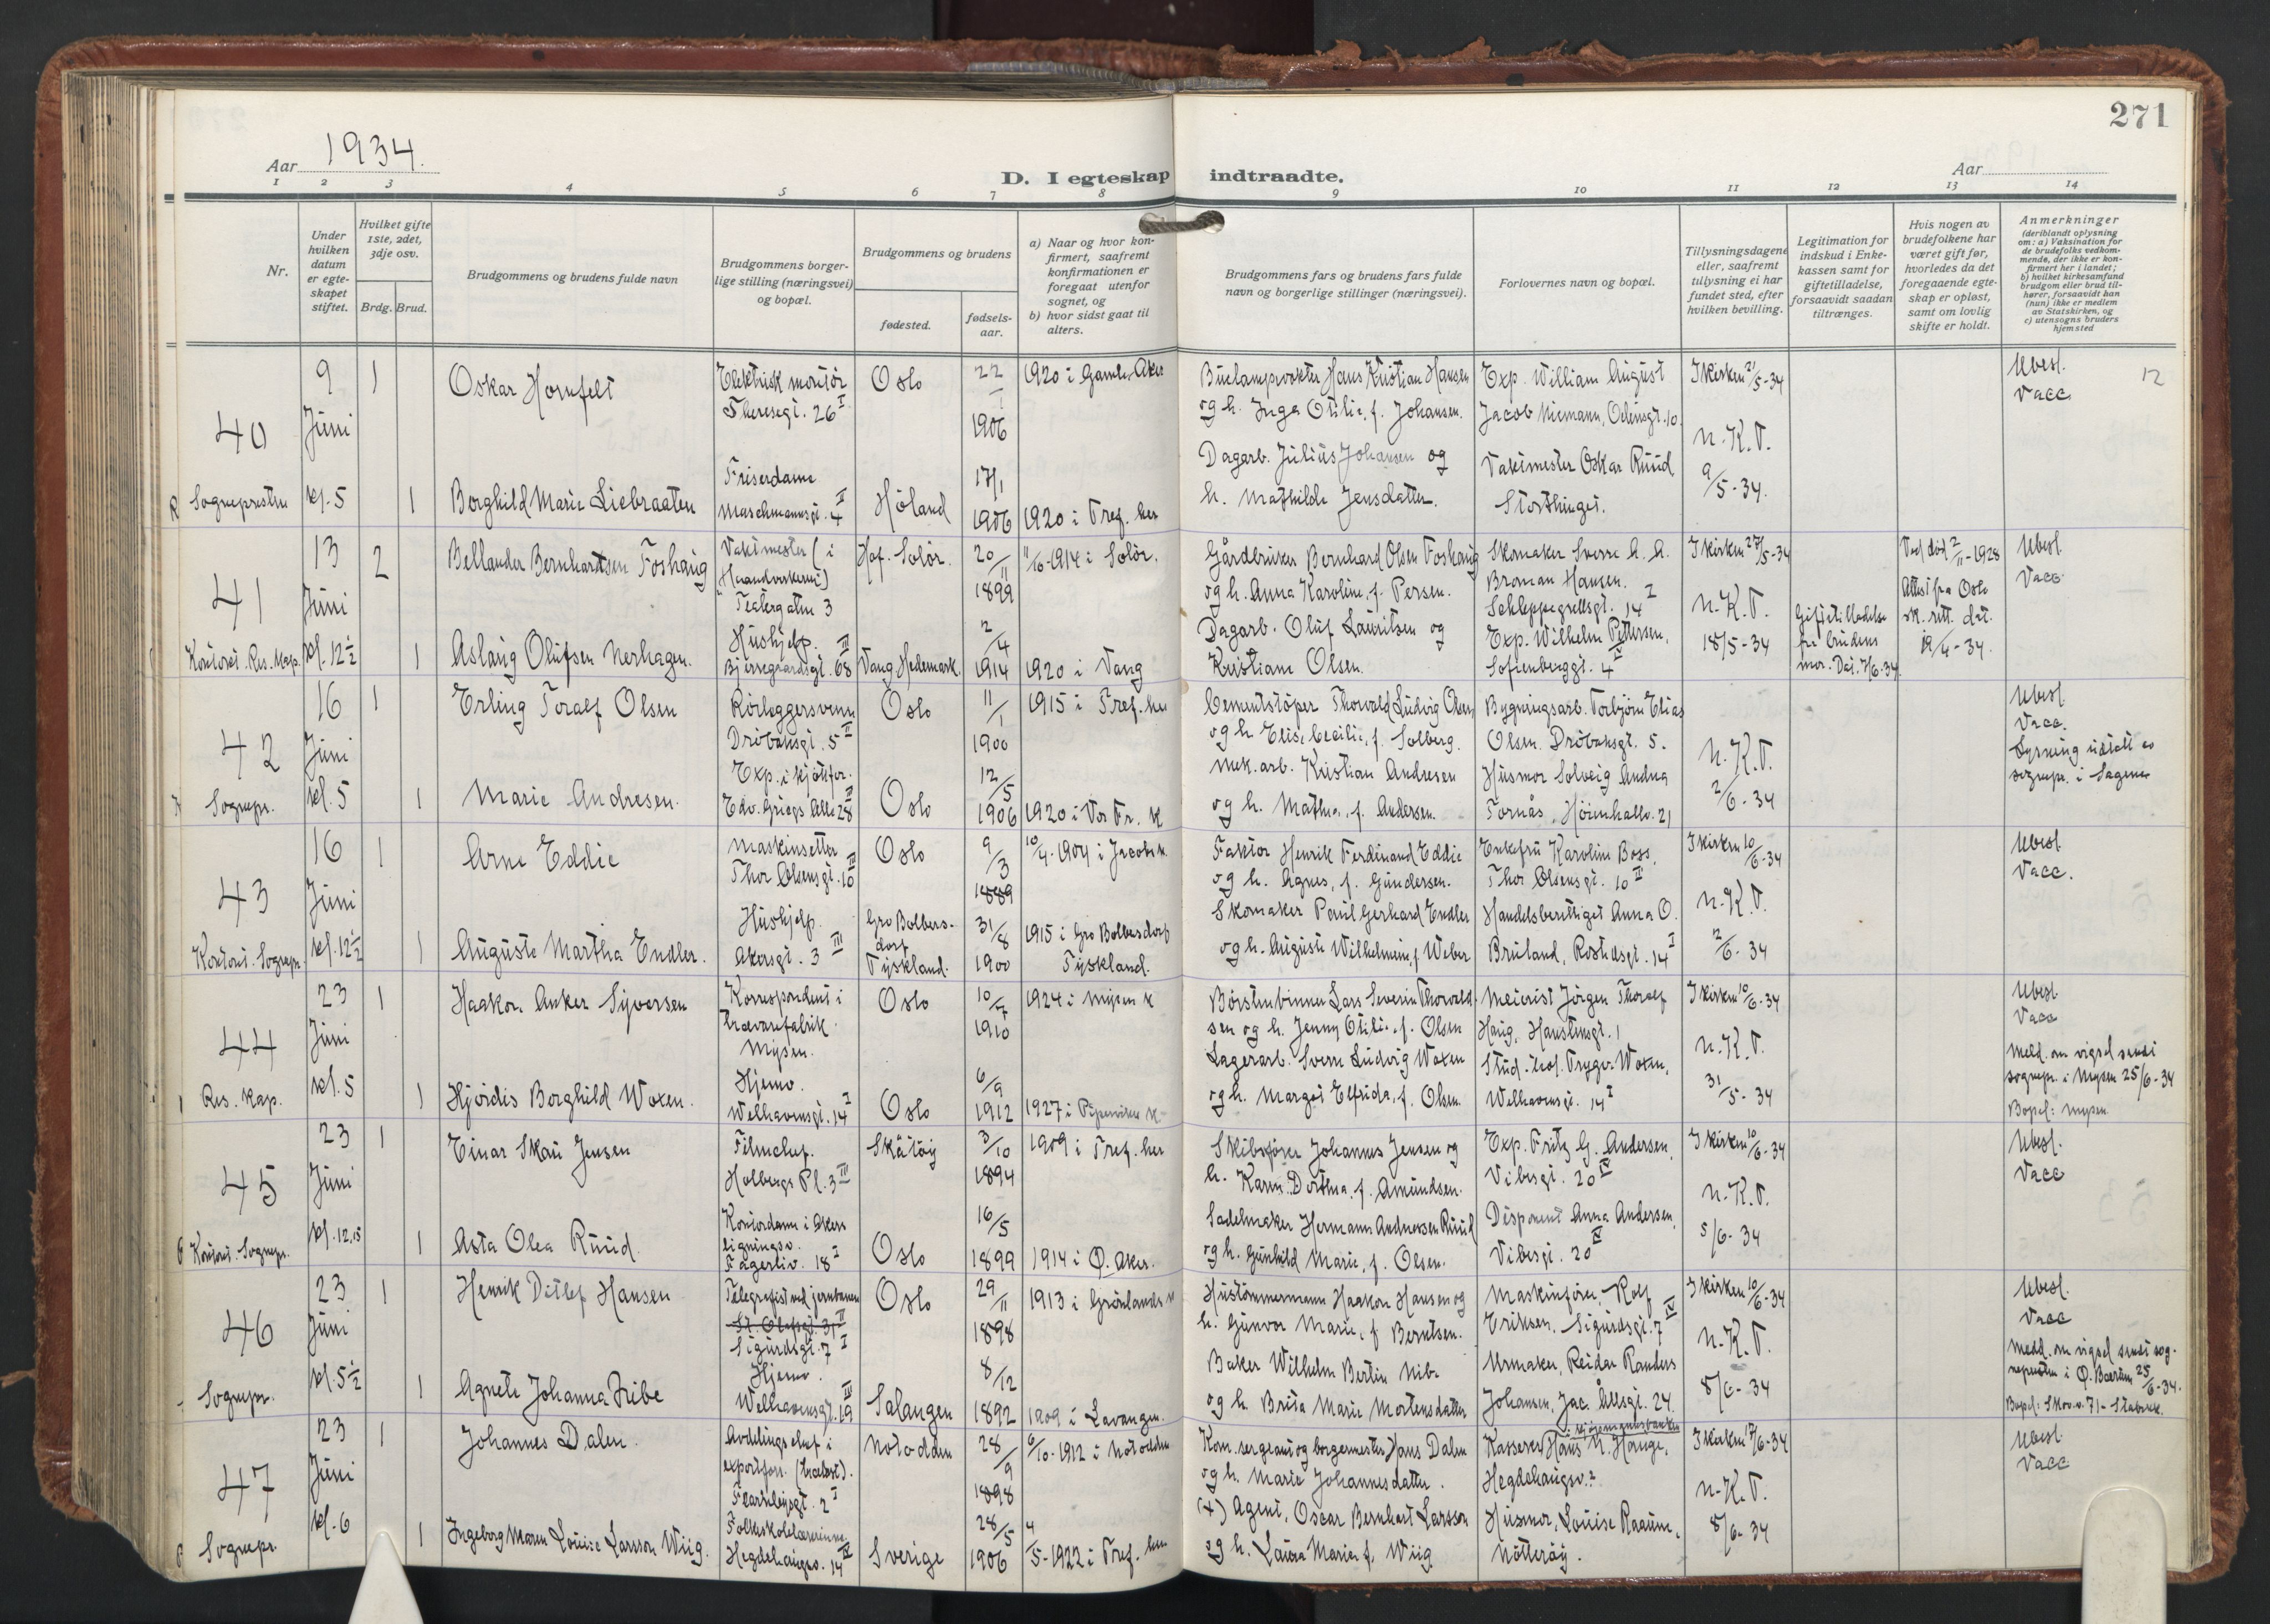 271
Aar 1934.
Aar
D. I egteskap indtraadte.
1 2 3 4 5 6 7 8 9 10 11 12 13 14
Nr.
Under hvilken datum er egteskapet stiftet.
Hvilket gifte 1ste, 2det, 3dje osv.
Brdg. Brud.
Brudgommens og brudens fulde navn
Brudgommens borgerlige stilling (næringsvei) og bopæl.
Brudgommens og brudens
fødested.
fødselsaar.
a) Naar og hvor konfirmert, saafremt konfirmationen er foregaat utenfor sognet, og
b) hvor sidst gaat til alters.
Brudgommens fars og brudens fars fulde navn og borgerlige stillinger (næringsvei).
Forlovernes navn og bopæl.
Tillysningsdagene eller, saafremt tillysning ei har fundet sted, efter hvilken bevilling.
Legitimation for indskud i Enkekassen samt for giftetilladelse, forsaavidt saadan tiltrænges.
Hvis nogen av brudefolkene har været gift før, hvorledes da det foregaaende egteskap er opløst, samt om lovlig skifte er holdt.
Anmerkninger
(deriblandt oplysning om: a) Vaksination for de brudefolks vedkommende, der ikke er konfirmert her i landet; b) hvilket kirkesamfund brudgom eller brud tilhører, forsaavidt han (hun) ikke er medlem av Statskirken, og c) utensogns bruders hjemsted
40
9 Juni kl. 5
Sognepresten
1 Oskar Hornfelt
Elektrisk montör
Theresegt. 26 I
Oslo
22/1 1906
1920 i Gamle Aker
Hans Kristian Hansen
og h. Inga Otilie, f. Johansen.
Exp. William August
Jacob Niemann, Odinsgt. 10
I kirken 21/5-34
N.K.T.
9/5-34.
Ubesl.
Vacc.
12
1 Borghild Marie Liebraaten
Friserdame
Maschmannsgt. 4 II
Höland
17/1 1906
1920 i Tref. her
Dagarb. Julius Johansen og
h. Mathilde Jensdatter.
Vaktmester Oskar Ruud
Storthinget.
41
13 Juni kl. 12½
Kontoret. Res. Kap.
2 Bellander Bernhardtsen Foshaug
Vaktmester (i
Haandverkeren)
Teatergaten 3
Hof. Solör.
20/11 1899
11/10-1914 i Solör.
Gårdbruker Bernhard Olsen Foshaug
og h. Anna Karoline, f. Persen.
Skomaker Sverre A. A.
Broman Hansen.
Schleppegrellsgt. 14 I
I kirken 27/5-34
N.K.T.
18/5-34
Giftetilladelse
fra brudens
mor. Dat. 7/6-34
Ved död 2/11-1928
Attest fra Oslo
sk. rett. dat.
19/4-34.
Ubesl.
Vacc.
1 Aslaug Olufsen Nerhagen.
Hushjelp.
Bjerregaardsgt. 68 III
Vang Hedemark.
2/4 1914
1920 i Vang
Dagarb. Oluf Lauritsen og
Kristiane Olsen.
Exp. Wilhelm Pettersen,
Sofienberggt. 4 IV
42
16 Juni kl. 5
Sognepr.
1 Erling Toralf Olsen
Rörleggersvenn
Dröbaksgt. 5 II
Oslo
11/1 1900
1915 i Tref. her
Cementstöper Thorvald Ludvig Olsen
og h. Elise Cecilie, f. Solberg.
Bygningsarb. Torbjörn Elias
Olsen. Dröbaksgt. 5.
N.K.T.
2/6-34
Ubesl.
Vacc.
Lysning utstedt av
sognepr. i Sagene
1 Marie Andresen.
Exp. i kjöttfor.
Edv. Griegs Alle 28 III
Oslo
12/5 1906
1920 i Vor Fr. k
Mek. arb. Kristian Andresen
og h. Mathea, f. Andersen.
Husmor Solveig Andrea
Fornås, Höienhallv. 21
43
16 Juni kl. 12½
Kontoret. Sognepr.
1 Arne Eddie
Maskinsetter
Thor Olsensgt. 10 III
Oslo
9/3 1889
10/4-1904 i Jacobs k.
Faktor Henrik Ferdinand Eddie
og h. Agnes, f. Gundersen.
Enkefru Karoline Boss,
Thor Olsensgt. 10 II
I kirken 10/6-34
N.K.T.
2/6-34
Ubesl.
Vacc.
1 Auguste Martha Endler.
Hushjelp.
Akersgt. 3 III
Gro Bolbersdorf
Tyskland.
31/8 1900
1915 i Gro Bolbersdorf
Tyskland.
Skomaker Paul Gerhard Endler
og h. Auguste Wilhelmine, f. Weber
Handelsberettiget Anna O.
Bruland, Rostedsgt. 14 I
44
23 Juni kl. 5
Res. Kap.
1 Haakon Anker Syversen
Korrespondent i
trævarefabrik.
Mysen.
Oslo
10/7 1910
1924 i Mysen k
Börstenbinner Lars Severin Thorvald-
sen og h. Jenny Otilie, f. Olsen
Meierist Jörgen Thoralf
Haug, Haustensgt. 1
I kirken 10/6-34
N.K.T.
31/5-34
Ubesl.
Vacc
Meld. om vigsel sendt
sognepr. i Mysen 25/6-34
Bopel: Mysen.
1 Hjördis Borghild Woxen.
Hjemv.
Welhavensgt. 14 I
Oslo
6/9 1912
1927 i Piperviken k.
Lagerarb. Sverre Ludvig Woxen
og h. Margot Elfrida, f. Olsen.
Stud. Trygve Woxen,
Welhavensgt. 14 I
45
23 Juni kl. 12.15
Kontoret. Sognepr.
1 Einar Skau Jensen
Filmchef.
Holbergs Pl. 3 III
Skåtöy
3/10 1894
1909 i Tref. her
Skibsförer Johannes Jensen og
h. Karen Dorthea, f. Amundsen.
Exp. Fritz G. Andersen,
Vibesgt. 20 IV
I kirken 10/6-34
N.K.T.
5/6-34
Ubesl.
Vacc
1 Asta Olea Ruud.
Kontordame i Akers
ligningsv.
Fagerliv. 18 I
Oslo
16/5 1899
1914 i Ö. Aker.
Sadelmaker Hermann Andreassen Ruud
og h. Gunhild Marie, f. Olsen.
Disponent Anna Andersen,
Vibesgt. 20 IV
46
23 Juni kl. 5½
Sognepr.
1 Henrik Ditlef Hansen
Telegrafist ved jernbanen
St. Olafsgt. 31 II
Sigurdsgt. 7 I
Oslo
29/11 1898
1913 i Grönlands k
Hustömmermann Haakon Hansen og
h. Gunvor Marie, f. Berntsen.
Maskinförer, Rolf
Eriksen. Sigurdsgt. 7 IV
I kirken 10/6-34
N.K.T.
8/6-34
Ubesl.
Vacc
Medd. om vigsel sendt sog-
nepresten i Ö. Bærum 25/6-34.
Bopel: Skov.v. 71 - Stabekk.
1 Agnete Johanna Nibe
Hjemv.
Welhavensgt. 19 III
Salangen
8/12 1892
1909 i Lavangen.
Baker Wilhelm Bertin Nibe
og h. Brita Marie Mortensdatter
Urmaker, Reidar Randers
Johansen, Jac. Ållsgt. 24.
47
23 Juni kl. 6
Sognepr.
1 Johannes Dalen.
Avdelingschef i
exportforr. (trælast).
Fearnleysgt. 2 I
Notodden
28/9 1898
6/10-1912 i Notodden
Kom. sergeant og borgermester Hans Dalen
og h. Marie Johannesdatter.
Kasserer Hans N. Hauge,
Hegdehaugsv. 2
I kirken 17/6-34
N.K.T.
8/6-34
Ubesl.
Vacc
1 Ingeborg Maren Louise Larsson Wiig.
Folkeskolelærerinne
Hegdehaugsv. 14 IV
Sverige
28/5 1906
4/5-1922 i Tref. her
(+) Agent, Oscar Bernhart Larsson
og h. Laura Marie f. Wiig
Husmor, Louise Raaum,
Nötteröy.